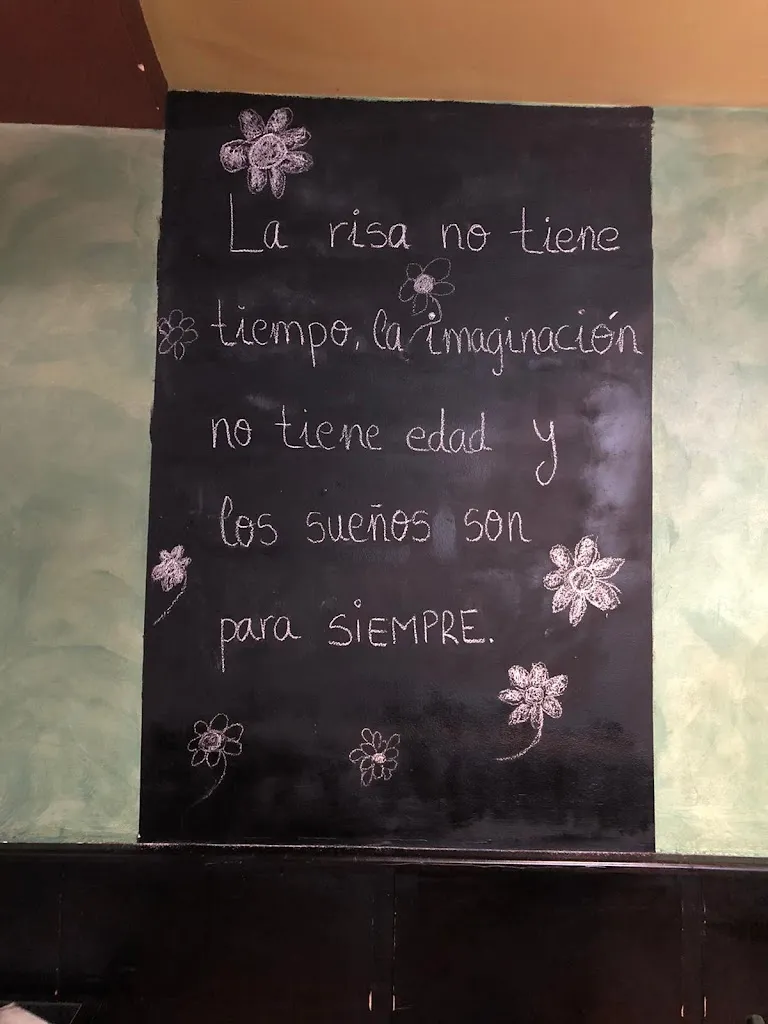 La risa no tiene
tiempo, la imaginación
no tiene edad y
los sueños son
para SiEMPRE.